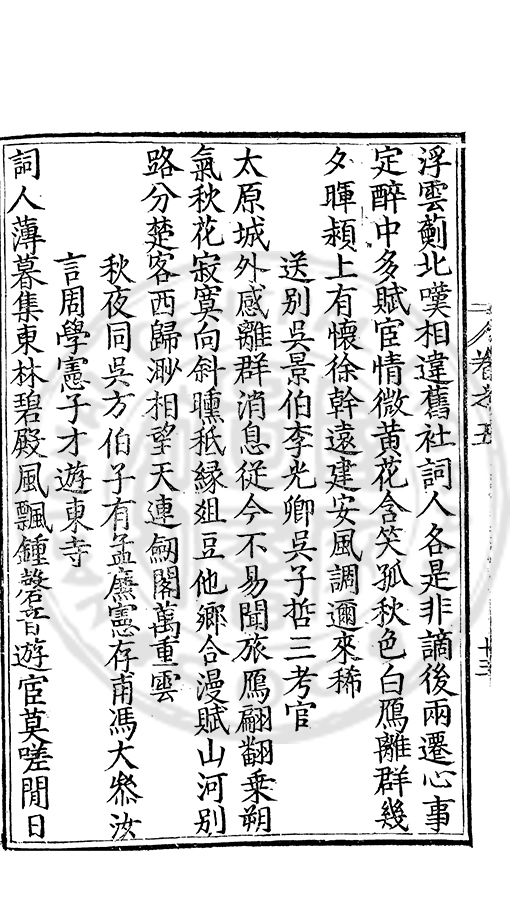 浮雲薊北嘆相違舊社詞人各是非謫後兩遷心事
定醉中多賦宦情微黃花含笑孤秋色白鴈離群幾
夕暉潁上有懷徐幹遠建安風調邇來稀
送別吳景伯李光卿吳子哲三考官
太原城外感離群消息從今不易聞旅鴈翩翻乗朔
氣秋花寂寞向斜曛秪縁爼豆他鄉合漫賦山河別
路分楚客西歸渺相望天連劒閣萬重雲
秋夜同吳方伯子有孟廉憲存甫馮大叅汝
言周學憲子才遊東寺
詞人薄暮集東林碧殿風飄鍾磬音遊宦莫嗟閒日
十三